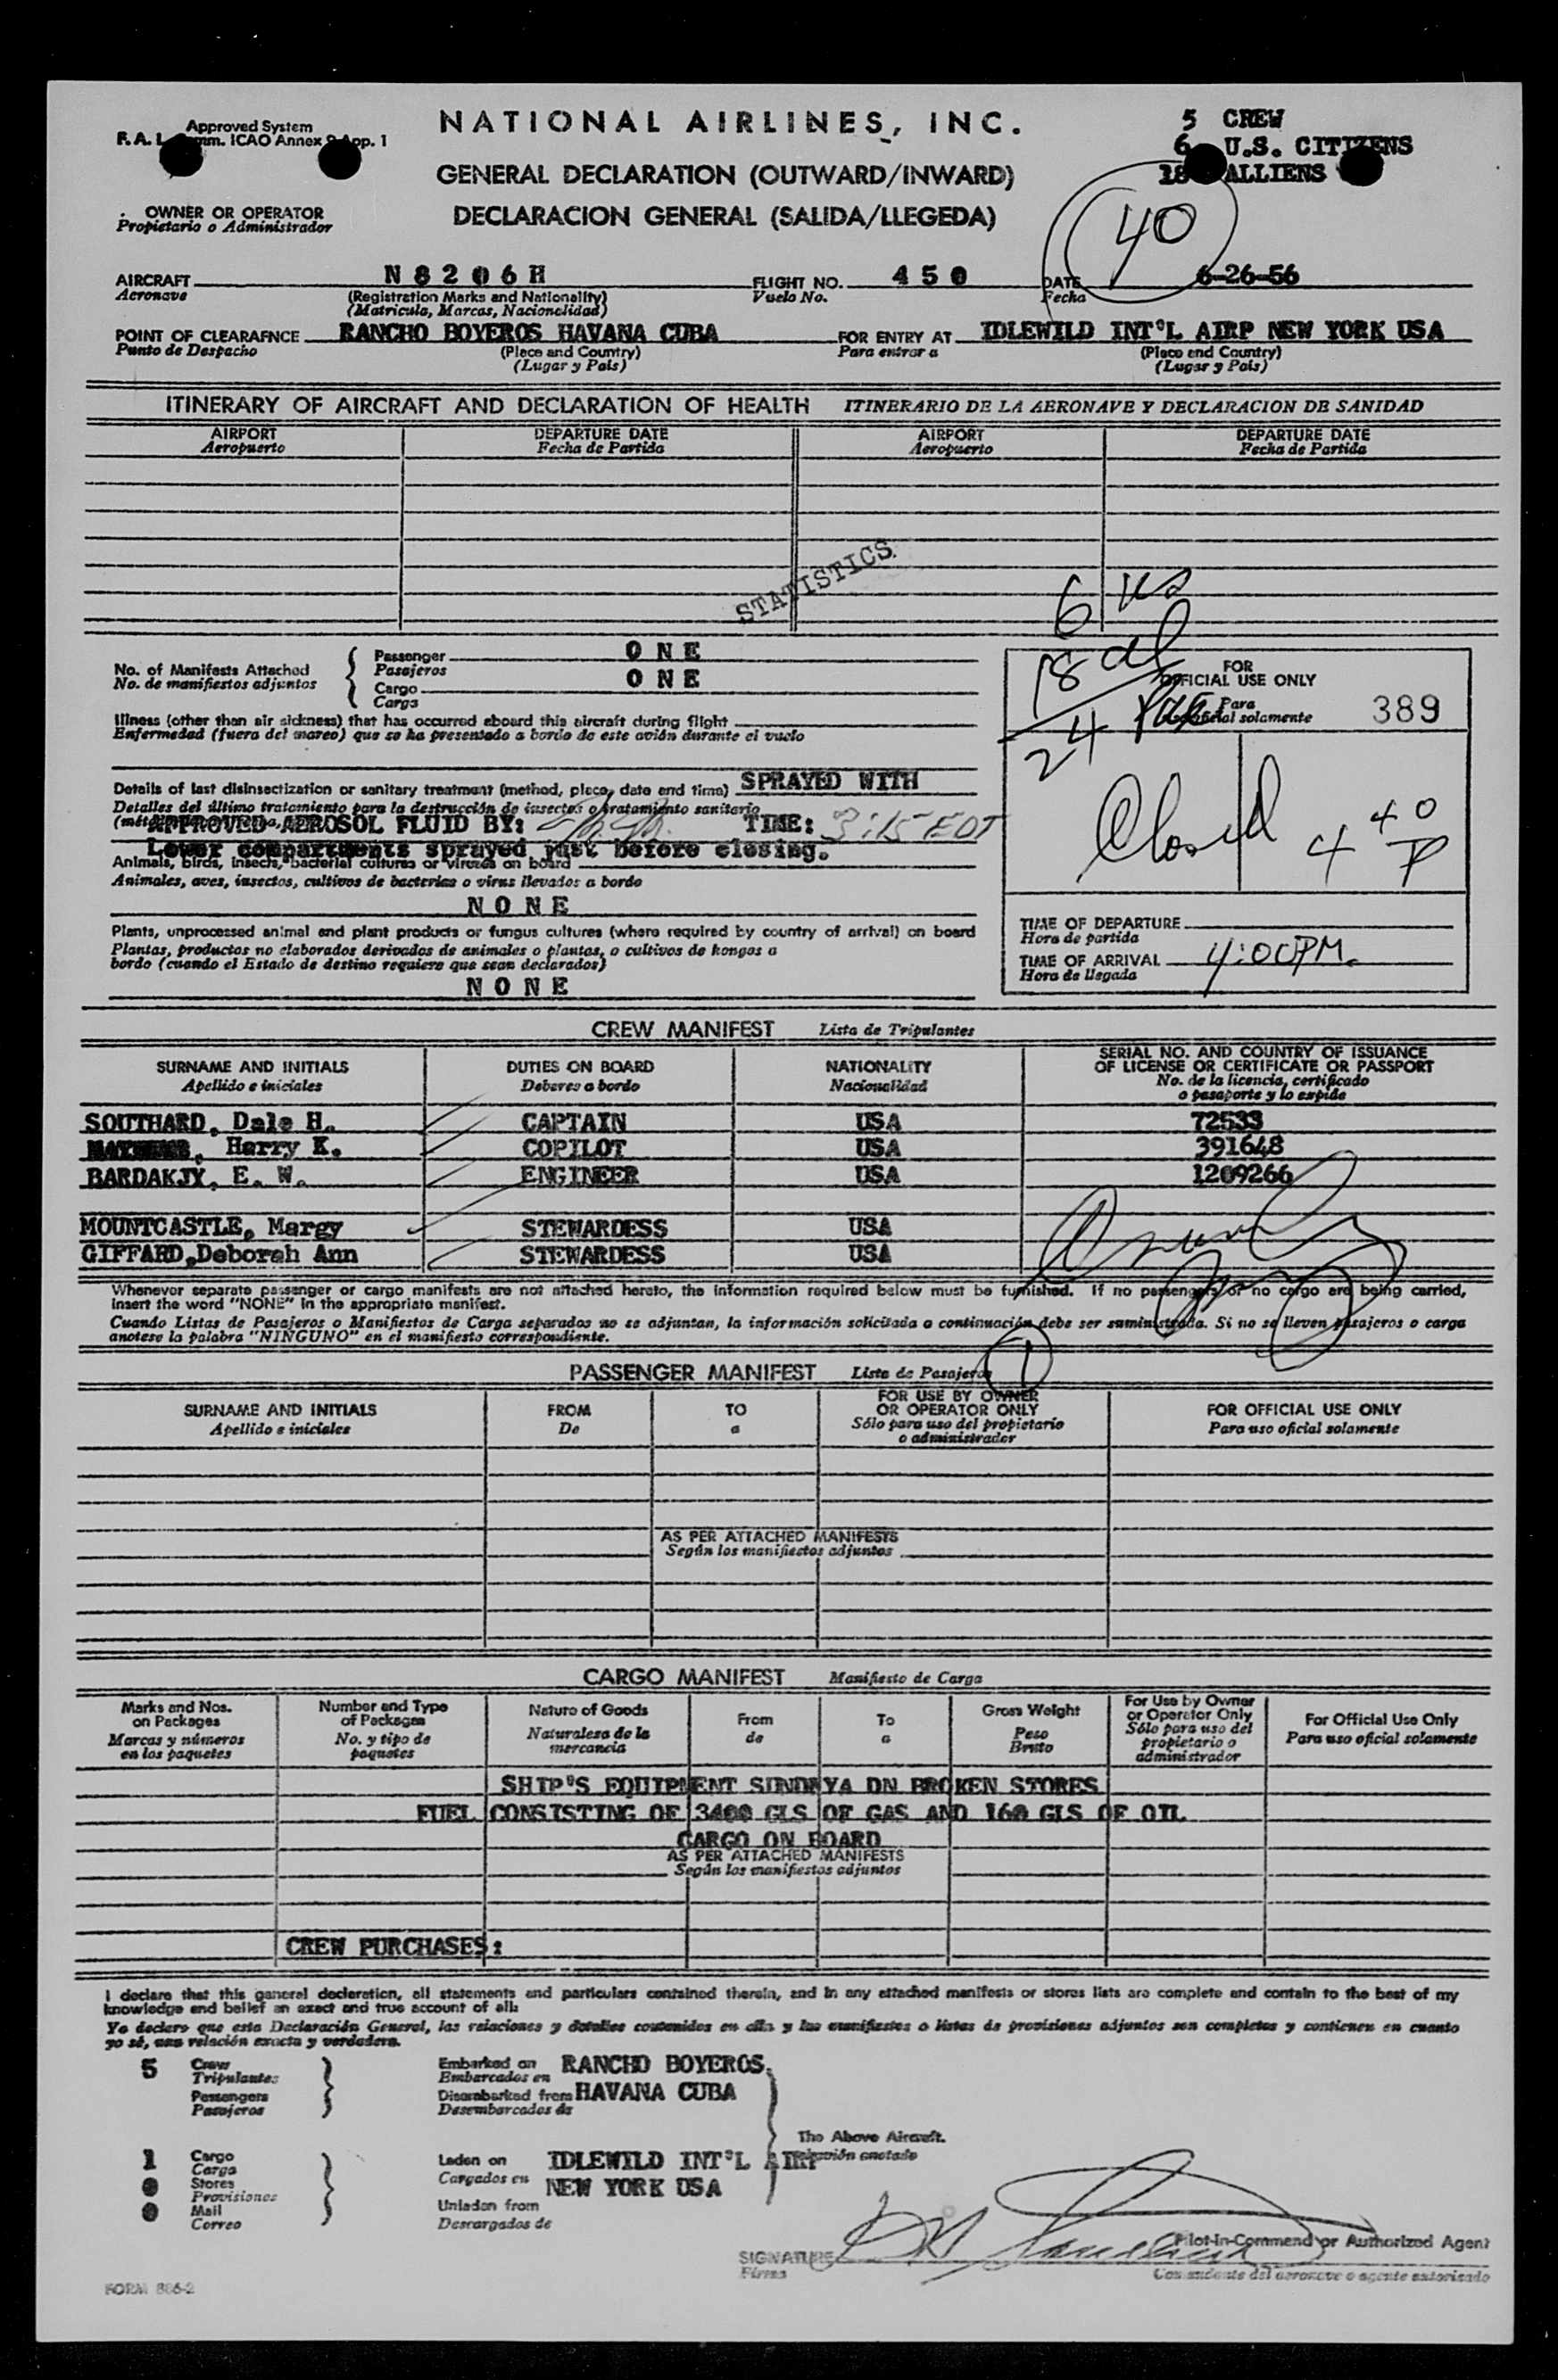 Approved System
F.A.L. Comm. ICAO Annex 9 App. 1
NATIONAL AIRLINES, INC.
GENERAL DECLARATION (OUTWARD/INWARD)
DECLARACION GENERAL (SALIDA/LLEGEDA)
5 CREW
6 U.S. CITIZENS
18 ALLIENS
40
OWNER OR OPERATOR
Propietario o Administrador
AIRCRAFT N 8 2 0 6 H FLIGHT NO. 4 5 0 DATE 6-26-56
Aeronave (Registration Marks and Nationality) Vuelo No. Fecha
(Matricula, Marcas, Nacionalidad)
POINT OF CLEARAFNCE RANCHO BOYEROS HAVANA CUBA FOR ENTRY AT IDLEWILD INT'L AIRP NEW YORK USA
Punto de Despacho (Place and Country) Para entrar a (Place and Country)
(Lugar y País) (Lugar y País)
ITINERARY OF AIRCRAFT AND DECLARATION OF HEALTH ITINERARIO DE LA AERONAVE Y DECLARACION DE SANIDAD
AIRPORT DEPARTURE DATE AIRPORT DEPARTURE DATE
Aeropuerto Fecha de Partida Aeropuerto Fecha de Partida
STATISTICS
6 US
18 al
24
No. of Manifests Attached
No. de manifiestos adjuntos
Passenger O N E
Pasajeros
Cargo O N E
Carga
FOR
OFFICIAL USE ONLY
Para
oficial solamente
389
Illness (other than air sickness) that has occurred aboard this aircraft during flight
Enfermedad (fuera del mareo) que se ha presentado a bordo de este avión durante el vuelo
Details of last disinsectization or sanitary treatment (method, place, date and time) SPRAYED WITH
Detalles del último tratamiento para la destrucción de insectos o tratamiento sanitario
APPROVED AEROSOL FLUID BY: TIME: 3:15 EDT
Lower compartments sprayed just before closing.
Animals, birds, insects, bacterial cultures or viruses on board
Animales, aves, insectos, cultivos de bacterias o virus llevados a bordo
N O N E
Closed 4 40 P
Plants, unprocessed animal and plant products or fungus cultures (where required by country of arrival) on board
Plantas, productos no elaborados derivados de animales o plantas, o cultivos de hongos a
bordo (cuando el Estado de destino requiere que sean declarados)
N O N E
TIME OF DEPARTURE
Hora de partida
TIME OF ARRIVAL 4:00PM.
Hora de llegada
CREW MANIFEST Lista de Tripulantes
SURNAME AND INITIALS DUTIES ON BOARD NATIONALITY SERIAL NO. AND COUNTRY OF ISSUANCE
OF LICENSE OR CERTIFICATE OR PASSPORT
Apellido e iniciales Deberes a bordo Nacionalidad No. de la licencia, certificado
o pasaporte y lo expide
SOUTHARD, Dale H. CAPTAIN USA 72533
Harry K. COPILOT USA 391648
BARDAKJY, E. W. ENGINEER USA 1209266
MOUNTCASTLE, Margy STEWARDESS USA
GIFFARD,Deborah Ann STEWARDESS USA
Whenever separate passenger or cargo manifests are not attached hereto, the information required below must be furnished. If no passengers or no cargo are being carried,
insert the word "NONE" in the appropriate manifest.
Cuando Listas de Pasajeros o Manifiestos de Carga separados no se adjuntan, la información solicitada a continuación debe ser suministrada. Si no se lleven pasajeros o carga
anotese la palabra "NINGUNO" en el manifiesto correspondiente.
PASSENGER MANIFEST Lista de Pasajeros 1
SURNAME AND INITIALS FROM TO FOR USE BY OWNER
OR OPERATOR ONLY FOR OFFICIAL USE ONLY
Apellido e iniciales De a Sólo para uso del propietario
o administrador Para uso oficial solamente
AS PER ATTACHED MANIFESTS
Según los manifiestos adjuntos
CARGO MANIFEST Manifiesto de Carga
Marks and Nos.
on Packages
Marcas y números
en los paquetes
Number and Type
of Packages
No. y tipo de
paquetes
Nature of Goods
Naturalesa de la
mercancia
From
de
To
a
Gross Weight
Peso
Bruto
For Use by Owner
or Operator Only
Sólo para uso del
propietario o
administrador
For Official Use Only
Para uso oficial solamente
SHIP'S EQUIPMENT SUNDRYA DN BROKEN STORES
FUEL CONSISTING OF 3400 GLS OF GAS AND 160 GLS OF OIL
CARGO ON BOARD
AS PER ATTACHED MANIFESTS
Según los manifiestos adjuntos
CREW PURCHASES:
I declare that this general declaration, all statements and particulars contained therein, and in any attached manifests or stores lists are complete and contain to the best of my
knowledge and belief an exact and true account of all:
Yo declaro que esta Declaración General, las relaciones y detalles contenidos en ella y los manifiestos o listas de provisiones adjuntos son completos y contienen en cuanto
yo sé, una relación exacta y verdadera.
5 Crew
Tripulantes
Passengers
Pasajeros
Embarked on RANCHO BOYEROS,
Embarcados en
Disembarked from HAVANA CUBA
Desembarcados de
The Above Aircraft.
1 Cargo
Carga
0 Stores
Provisiones
0 Mail
Correo
Laden on IDLEWILD INT'L AIRP
Cargados en NEW YORK USA
Unladen from
Descargados de
Pilot-in-Command or Authorized Agent
SIGNATURE
Firma Comandante del aeronave o agente autorizado
FORM 886-2